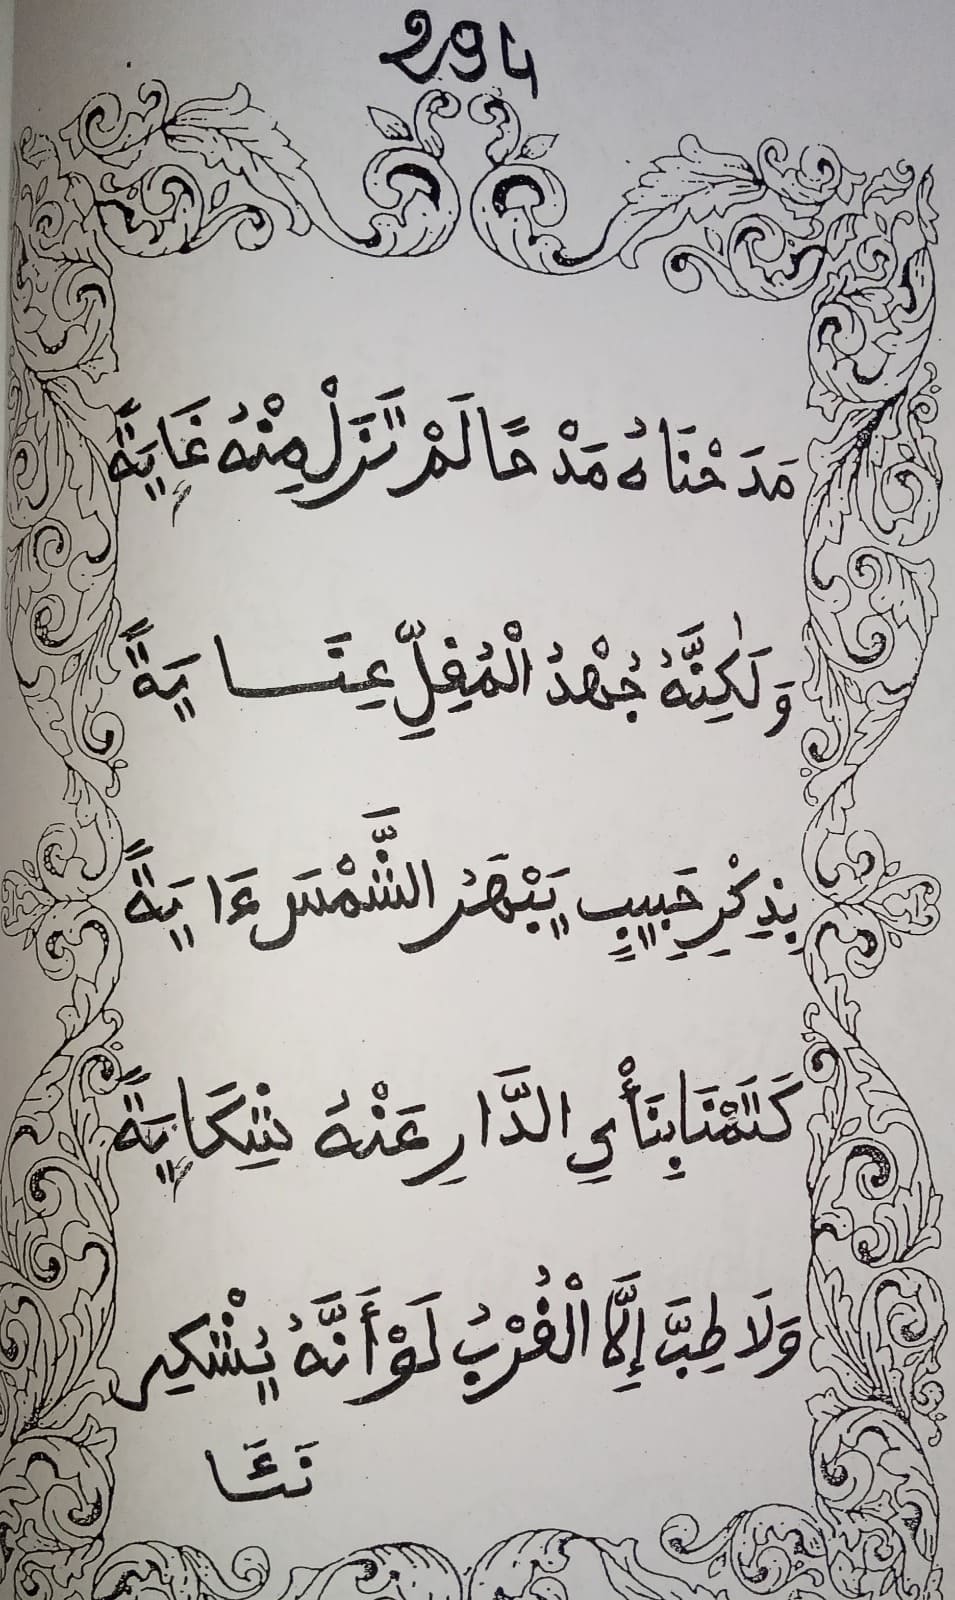 294
مَدَحْنَاهُ مَدْحًا لَمْ تَّزَلْ مِنْهُ غَايَةً
وَلَٰكِنَّهُ جُهْدُ الْمُفِلِّ عِنَايَةً
بِذِكْرِ حَبِيبٍ يَبْهَرُ الشَّمْسَ ءَايَةً
كَتَمْنَا بِنَأْيِ الدَّارِ عَنْهُ شِكَايَةً
وَلَا طِبَّ إِلَّا الْقُرْبُ لَوْ أَنَّهُ يُشْكِي
نَئَا